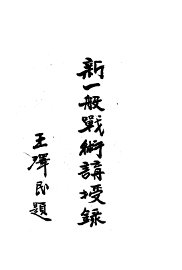 新一般戰術講授錄
王澤民題